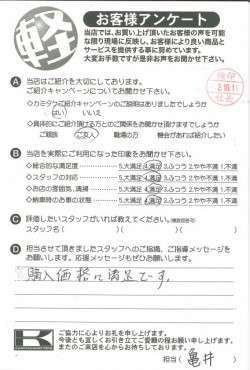 軽
お客様アンケート
当店では、お買い上げ頂いたお客様の声を可能
な限り現場に反映し、お客様により良い商品と
サービスを提供する事に努めています。
大変お手数ですが是非お声をお聞かせ下さい。
A 当店はご紹介を大切にしております。
ご紹介キャンペーンについてお聞かせ下さい
◇カミタウご紹介キャンペーンのご説明はありましたでしょうか
はい いいえ
◇具体的にご紹介頂ける方とのご関係をお聞かせ頂けますでしょうか
ご親族 ご友人 職場の方 機会があれば紹介したい
B 当店を実際にご利用になった印象をお聞かせ下さい。
◇総合的な満足度 5.大満足 4.満足 3.ふつう 2.やや不満 1.不満
◇スタッフの対応 5.大満足 4.満足 3.ふつう 2.やや不満 1.不満
◇お店の雰囲気、清掃 5.大満足 4.満足 3.ふつう 2.やや不満 1.不満
◇納車時のお車の状態 5.大満足 4.満足 3.ふつう 2.やや不満 1.不満
C 評価したいスタッフがいれば教えてください。(複数回答可)
スタッフ名( )( )( )
D 担当させて頂きましたスタッフへのご指摘、ご指導メッセージを
お願いします。応援メッセージもぜひお願いします。
購入価格に満足です。
ご協力に心よりお礼を申し上げます。
今後とも宜しくお引き立てご愛顧の程お願い申し上げます。
またのご来店を心からお待ちしております。
担当( 亀井 )